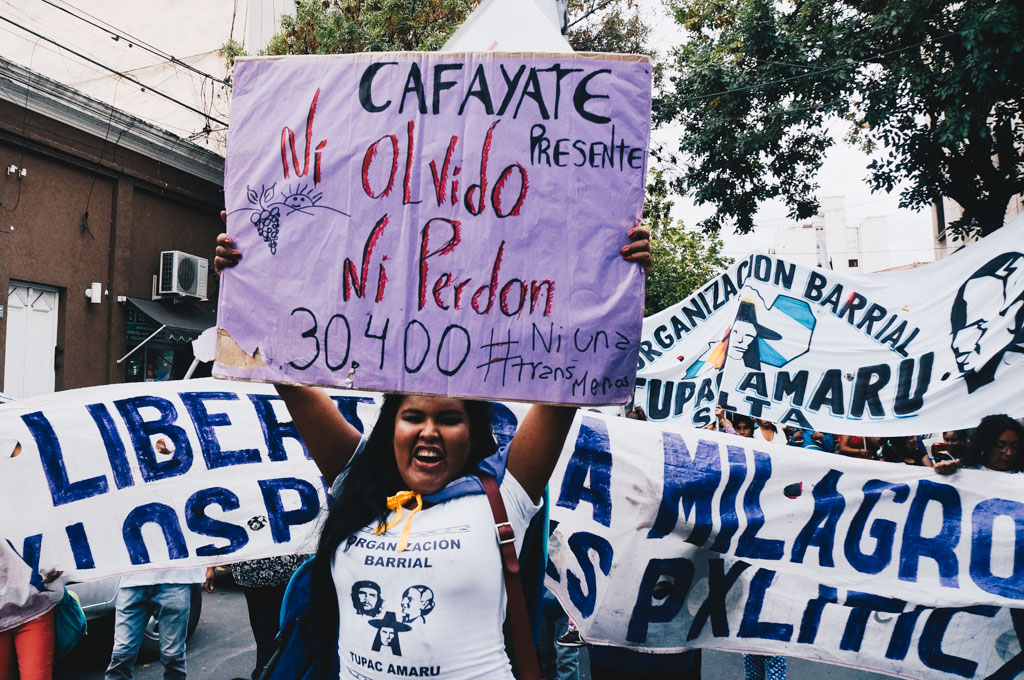 CAFAYATE
PRESENTE
Ni OLVido
Ni Perdon
30.400 #Ni Una
trans
Menos
ORGANIZACION BARRIAL
TUPAC AMARU
SALTA
LIBERT A MILAGRO
Y LOS P AS PXLITIC
ORGANIZACION
BARRIAL
TUPAC AMARU